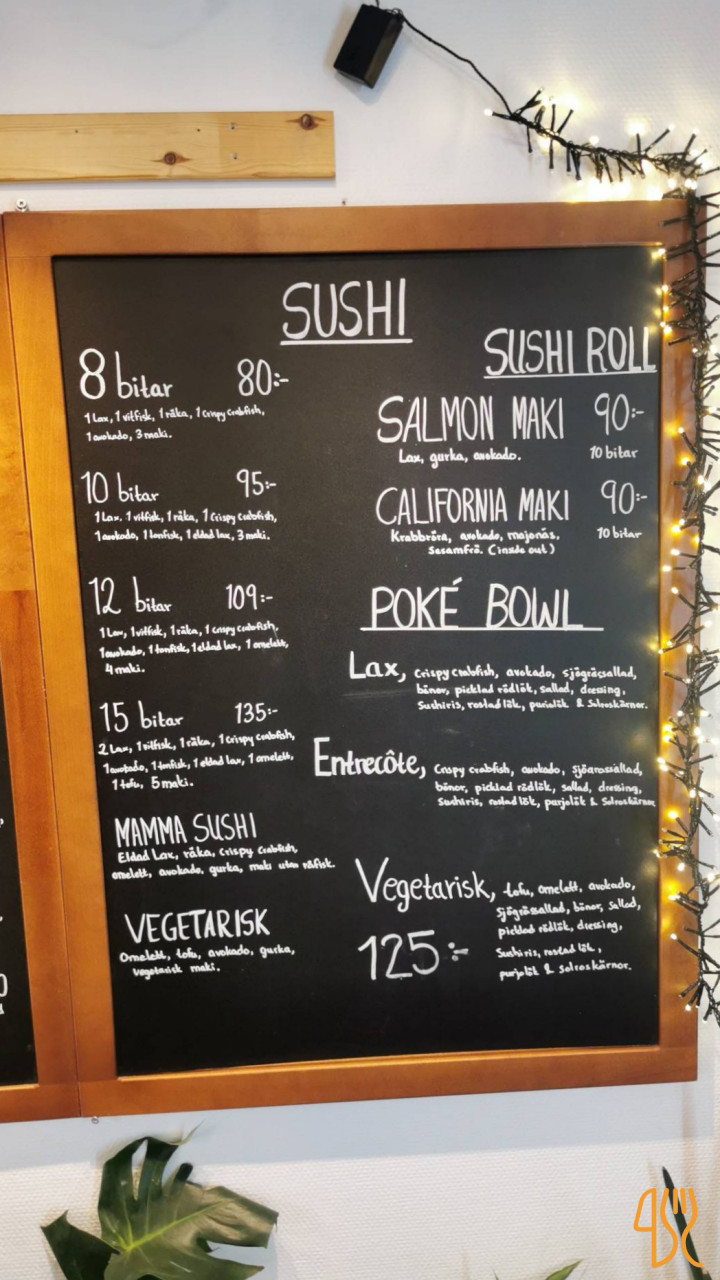 SUSHI
8 bitar 80:-
1 Lax, 1 vitfisk, 1 räka, 1 Crispy Crabfish,
1 avokado, 3 maki.
10 bitar 95:-
1 Lax, 1 vitfisk, 1 räka, 1 Crispy Crabfish,
1 avokado, 1 tonfisk, 1 eldad lax, 3 maki.
12 bitar 109:-
1 Lax, 1 vitfisk, 1 räka, 1 Crispy Crabfish,
1 avokado, 1 tonfisk, 1 eldad lax, 1 omelett,
4 maki.
15 bitar 135:-
2 Lax, 1 vitfisk, 1 räka, 1 Crispy Crabfish,
1 avokado, 1 tonfisk, 1 eldad lax, 1 omelett,
1 tofu, 5 maki.
MAMMA SUSHI
Eldad Lax, räka, Crispy Crabfish,
omelett, avokado, gurka, maki utan råfisk.
VEGETARISK
Omelett, tofu, avokado, gurka,
vegetarisk maki.
SUSHI ROLL
SALMON MAKI 90:-
Lax, gurka, avokado. 10 bitar
CALIFORNIA MAKI 90:-
Krabbröra, avokado, majonäs, 10 bitar
Sesamfrö. (inside out)
POKÉ BOWL
Lax, Crispy Crabfish, avokado, sjögrässallad,
bönor, picklad rödlök, sallad, dressing,
Sushiris, rostad lök, purjolök & Solroskärnor.
Entrecôte, Crispy crabfish, avokado, sjögrässallad,
bönor, picklad rödlök, sallad, dressing,
Sushiris, rostad lök, purjolök & Solroskärnor
Vegetarisk, tofu, omelett, avokado,
Sjögrässallad, bönor, Sallad,
picklad rödlök, dressing,
125:- Sushiris, rostad lök,
purjolök & solroskärnor.